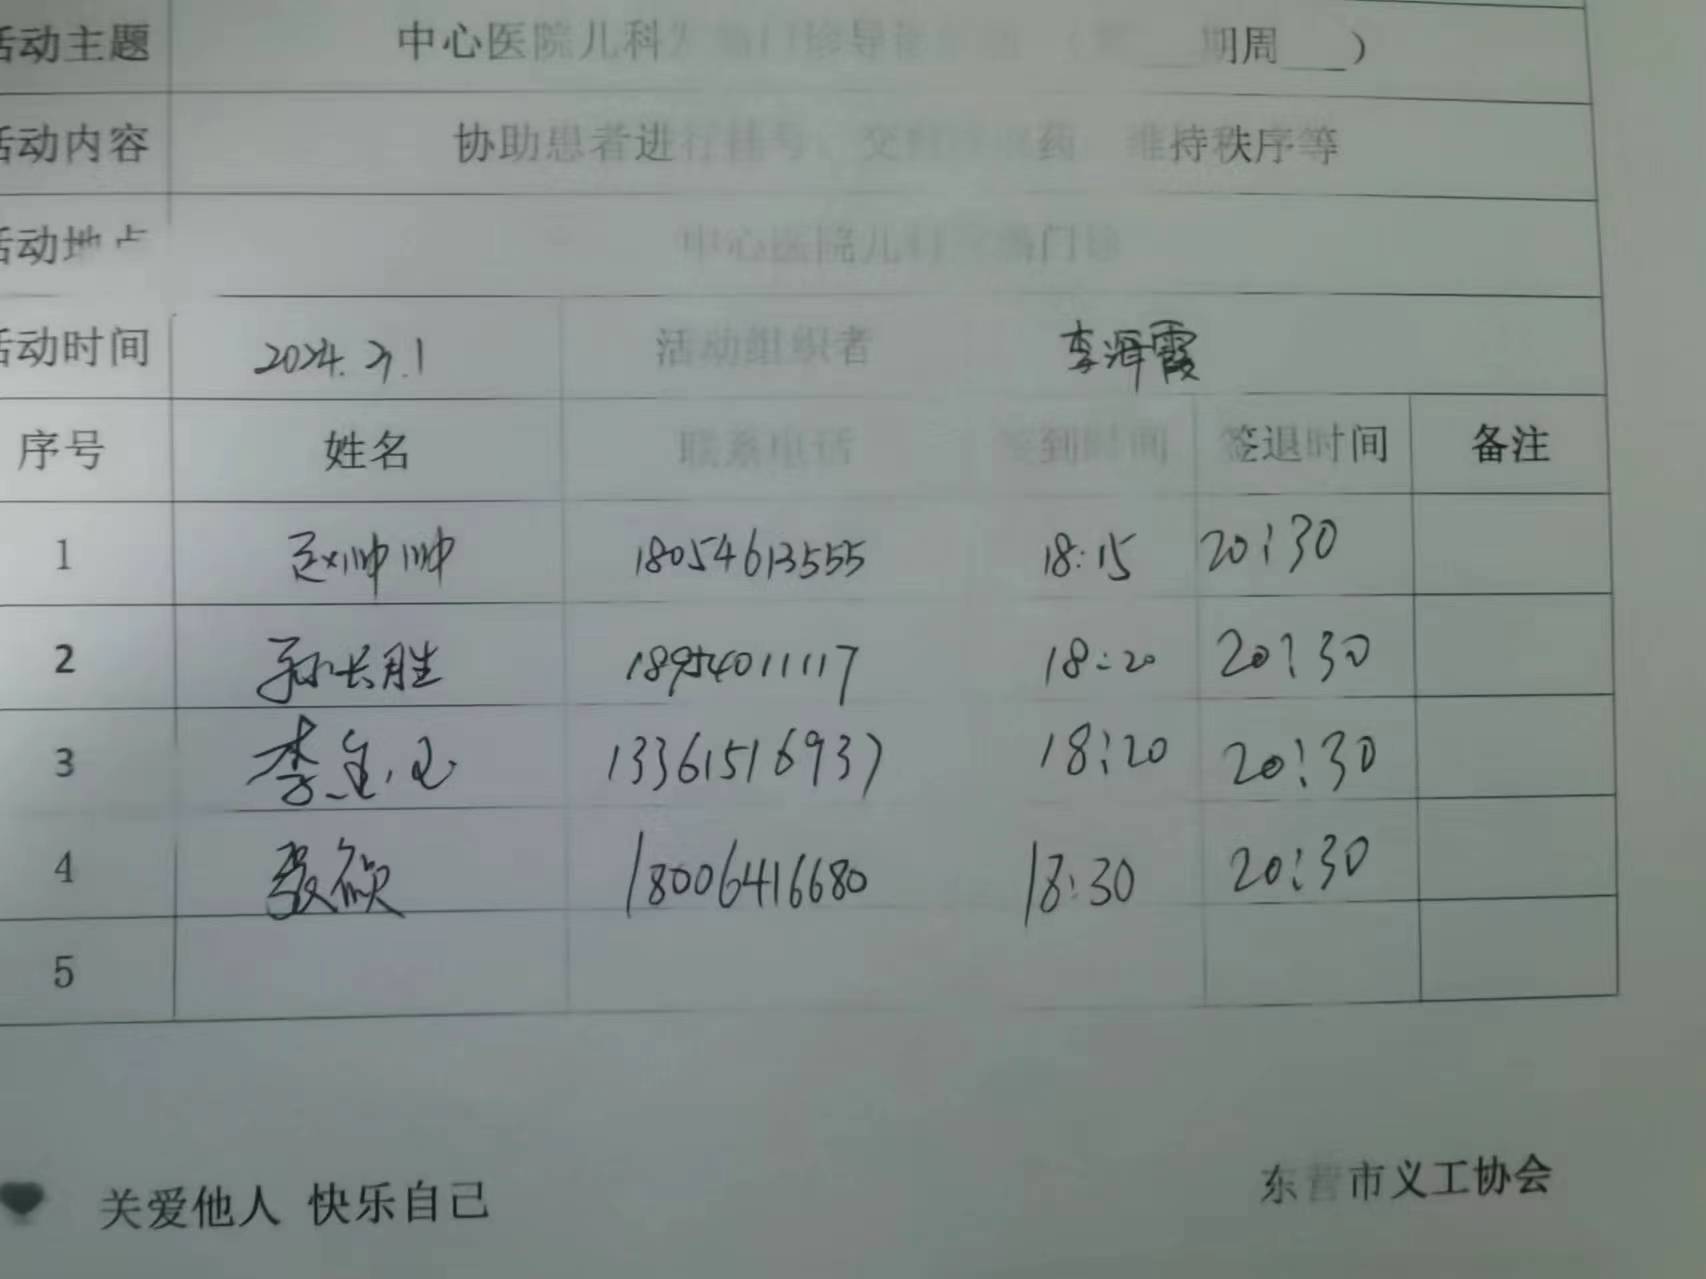 活动主题 中心医院儿科发热门诊导诊 期周___）
活动内容 协助患者进行挂号、交费 取药 维持秩序等
活动地点 中心医院儿科发热门诊
活动时间 2024.2.1 活动组织者 李海霞
序号 姓名 联系电话 签到时间 签退时间 备注
1 赵帅帅 18054613555 18:15 20:30
2 孙长胜 18954011117 18:20 20:30
3 李金玉 13361516937 18:20 20:30
4 张颀 18006416680 18:30 20:30
5
关爱他人 快乐自己
东营市义工协会